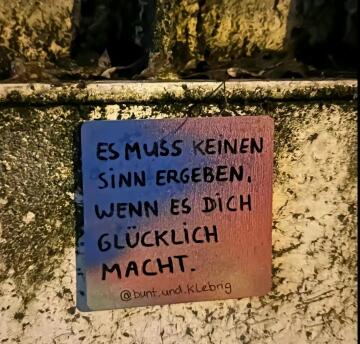 ES MUSS KEINEN
SINN ERGEBEN,
WENN ES DICH
GLÜCKLICH
MACHT.
@bunt.und.klebrig